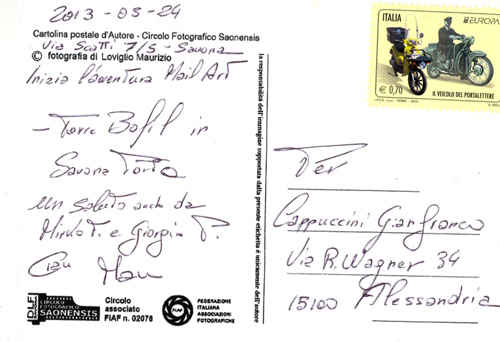 2013-05-24
Cartolina postale d'Autore - Circolo Fotografico Saonensis
Via Scotti 7/5 - Savona
© fotografia di Loviglio Maurizio
Inizia l'avventura Mail Art
- Torre Bofil in
Savona Porto
un saluto anche da
e Giorgio P.
Ciau Mau
DLF
CIRCOLO
FOTOGRAFICO
SAONENSIS
Circolo
associato
FIAF n. 02078
FIAF
FEDERAZIONE
ITALIANA
ASSOCIAZIONI
FOTOGRAFICHE
la responsabilità dell'immagine supportata dalla presente etichetta è unicamente dell'autore
ITALIA
EUROPA
IL VEICOLO DEL PORTALETTERE
€ 0,70
Per
Cappuccini Gianfranco
Via R. Wagner 34
15100 Alessandria